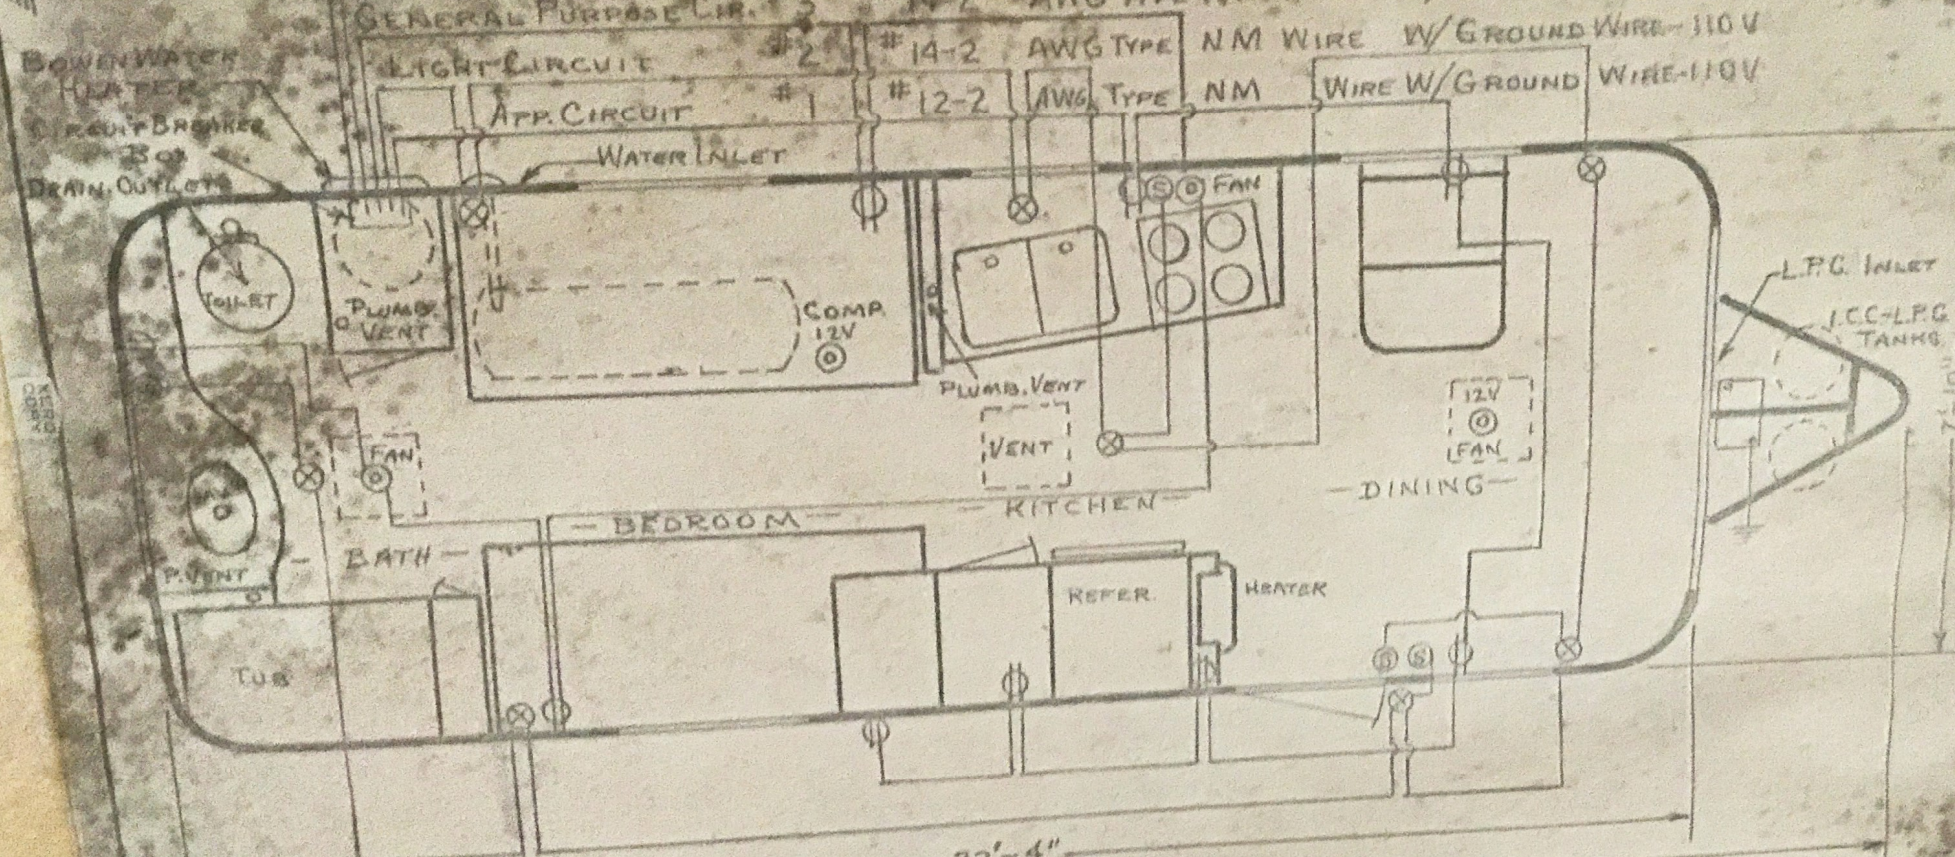 GENERAL PURPOSE CIR. 3
LIGHT CIRCUIT #2 #14-2 AWG TYPE NM WIRE W/GROUND WIRE-110V
APP. CIRCUIT #1 #12-2 AWG TYPE NM WIRE W/GROUND WIRE-110V
BOWEN WATER
HEATER
CIRCUIT BREAKER
BOX
DRAIN OUTLET
WATER INLET
FAN
TOILET
PLUMB.
VENT
COMP.
12V
PLUMB. VENT
L.P.G. INLET
I.C.C.-L.P.G.
TANKS
VENT
12V
FAN
FAN
-DINING-
-KITCHEN-
-BEDROOM-
-BATH-
P. VENT
REFER.
HEATER
TUB
S
S